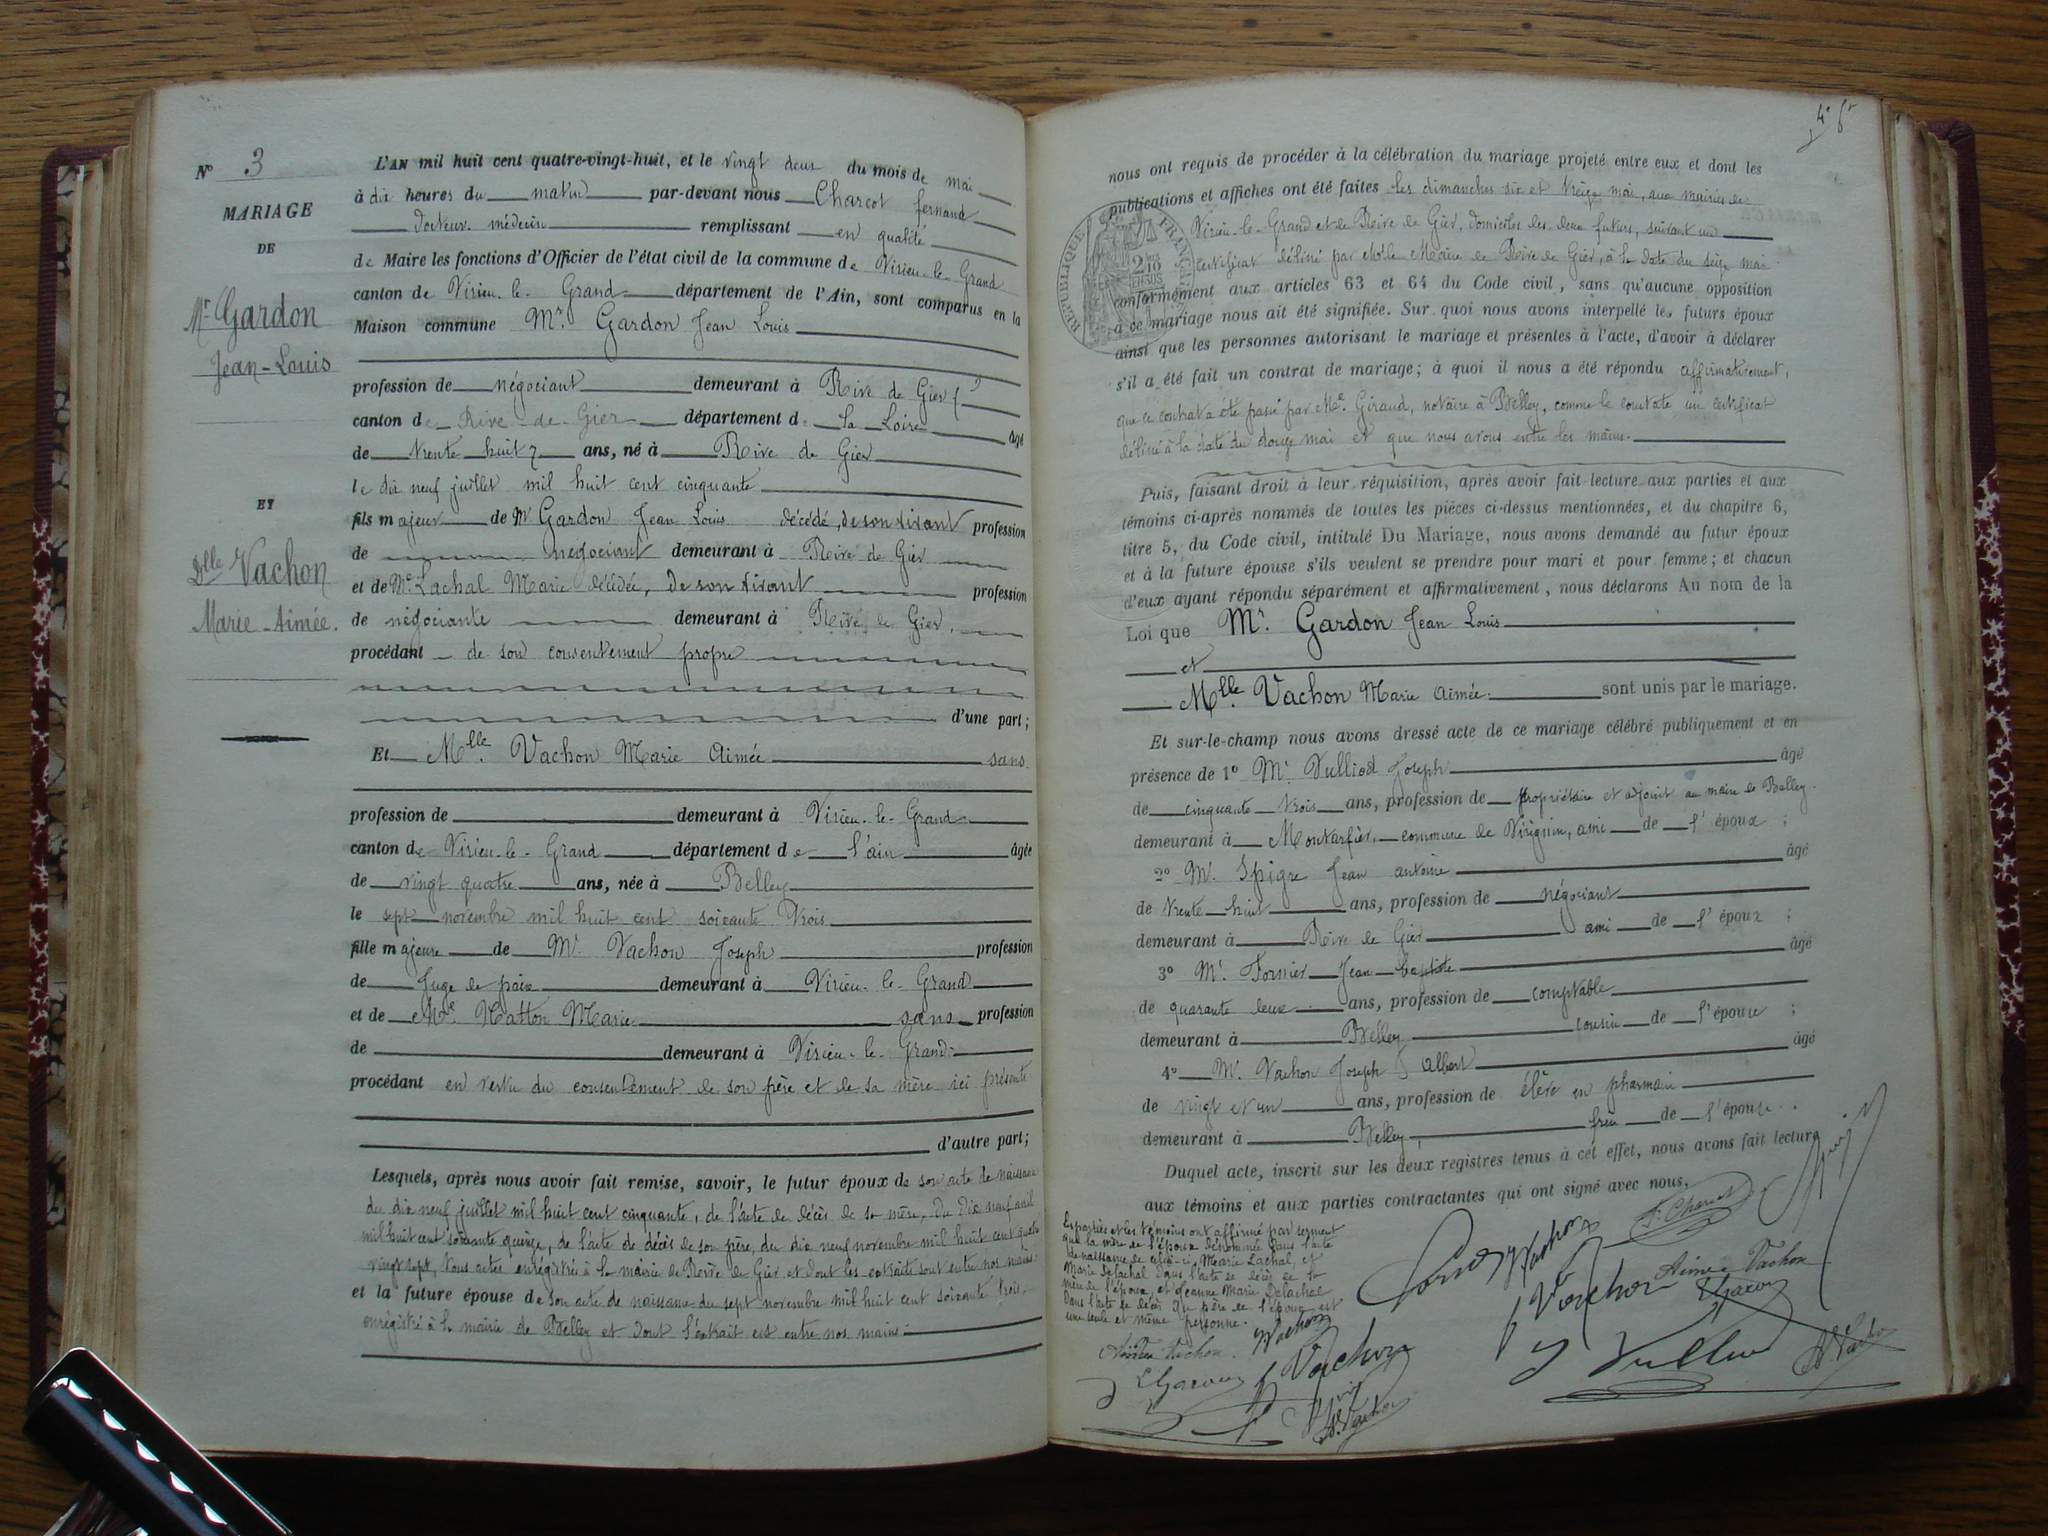 N° 3
MARIAGE
DE
Mr Gardon
Jean-Louis
ET
Dlle Vachon
Marie-Aimée.
L'AN mil huit cent quatre-vingt-huit, et le vingt deux du mois de mai
à dix heures du matin par-devant nous Charcot fernand
Docteur médecin remplissant en qualité
de Maire les fonctions d'Officier de l'état civil de la commune de Virieu-le-Grand
canton de Virieu-le-Grand département de l'Ain, sont comparus en la
Maison commune Mr. Gardon Jean Louis
profession de négociant demeurant à Rive de Gier
canton de Rive-de-Gier département de la Loire âgé
de trente huit ans, né à Rive de Gier
le dix neuf juillet mil huit cent cinquante
fils majeur de Mr Gardon Jean Louis décédé, de son vivant profession
de négociant demeurant à Rive de Gier
et de Me Lachal Marie décédée, de son vivant profession
de négociante demeurant à Rive de Gier,
procédant de son consentement propre
d'une part;
Et Mlle Vachon Marie Aimée sans
profession de demeurant à Virieu-le-Grand
canton de Virieu-le-Grand département de l'ain âgée
de vingt quatre ans, née à Belley
le sept novembre mil huit cent soixante trois
fille majeure de Mr Vachon Joseph profession
de Juge de paix demeurant à Virieu-le-Grand
et de Me Marie sans profession
de demeurant à Virieu-le-Grand
procédant en vertu du consentement de son père et de sa mère ici présents
d'autre part;
Lesquels, après nous avoir fait remise, savoir, le futur époux de son acte de naissance
du dix neuf juillet mil huit cent cinquante, de l'acte de décès de sa mère, du dix neuf avril
mil huit cent soixante quinze, de l'acte de décès de son père, du dix neuf novembre mil huit cent quatre
vingt sept, tous actes enregistrés à la mairie de Rive de Gier et dont les extraits sont entre nos mains
et la future épouse de son acte de naissance du sept novembre mil huit cent soixante trois,
enregistré à la mairie de Belley et dont l'extrait est entre nos mains
nous ont requis de procéder à la célébration du mariage projeté entre eux et dont les
publications et affiches ont été faites les dimanches six et treize mai, aux mairies de
Virieu-le-Grand et de Rive de Gier, domiciles des deux futurs, suivant un
certificat délivré par Mr le Maire de Rive de Gier, à la date du seize mai
conformément aux articles 63 et 64 du Code civil, sans qu'aucune opposition
à ce mariage nous ait été signifiée. Sur quoi nous avons interpellé les futurs époux
ainsi que les personnes autorisant le mariage et présentes à l'acte, d'avoir à déclarer
s'il a été fait un contrat de mariage; à quoi il nous a été répondu affirmativement,
que ce contrat a été passé par Me Giraud, notaire à Belley, comme le constate un certificat
délivré à la date du douze mai et que nous avons entre les mains.
Puis, faisant droit à leur réquisition, après avoir fait lecture aux parties et aux
témoins ci-après nommés de toutes les pièces ci-dessus mentionnées, et du chapitre 6,
titre 5, du Code civil, intitulé Du Mariage, nous avons demandé au futur époux
et à la future épouse s'ils veulent se prendre pour mari et pour femme; et chacun
d'eux ayant répondu séparément et affirmativement, nous déclarons Au nom de la
Loi que Mr. Gardon Jean Louis
et
Mlle Vachon Marie Aimée sont unis par le mariage.
Et sur-le-champ nous avons dressé acte de ce mariage célébré publiquement et en
présence de 1° Mr Vulliod Joseph âgé
de cinquante trois ans, profession de propriétaire et adjoint au maire de Belley
demeurant à commune de Virignin, ami de l'époux;
2° Mr. Spigre Jean antoine âgé
de trente huit ans, profession de négociant
demeurant à Rive de Gier ami de l'époux;
3° Mr. Fornier Jean baptiste âgé
de quarante deux ans, profession de comptable
demeurant à Belley cousin de l'épouse;
4° Mr. Vachon Joseph Albert âgé
de vingt et un ans, profession de élève en pharmacie
demeurant à Belley, frère de l'épouse.
Duquel acte, inscrit sur les deux registres tenus à cet effet, nous avons fait lecture
aux témoins et aux parties contractantes qui ont signé avec nous,
Les parties et les témoins ont affirmé par serment
que la mère de l'époux dénommée dans l'acte
de naissance de celui-ci, Marie Lachal, et
Marie Delachal dans l'acte de décès de la
mère de l'époux, et Jeanne Marie Delachal
dans l'acte de décès du père de l'époux est
une seule et même personne.
F. Charcot
Vachon
Vachon
Aimée Vachon
Vachon
Vachon
Vachon
REPUBLIQUE FRANÇAISE